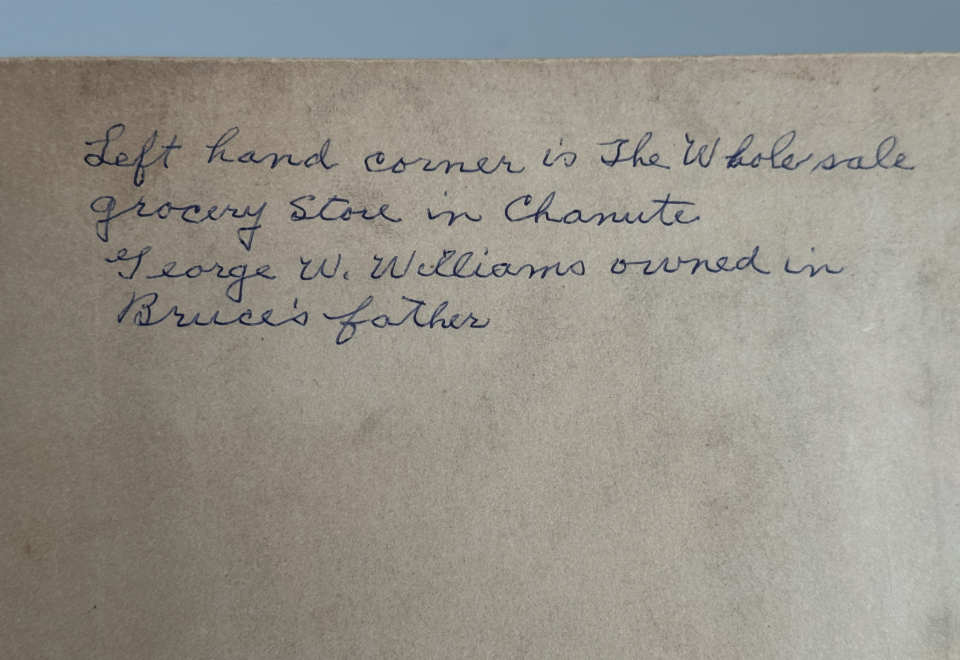 Left hand corner is The Whole sale
grocery Store in Chanute
George W. Williams owned in
Bruce's father